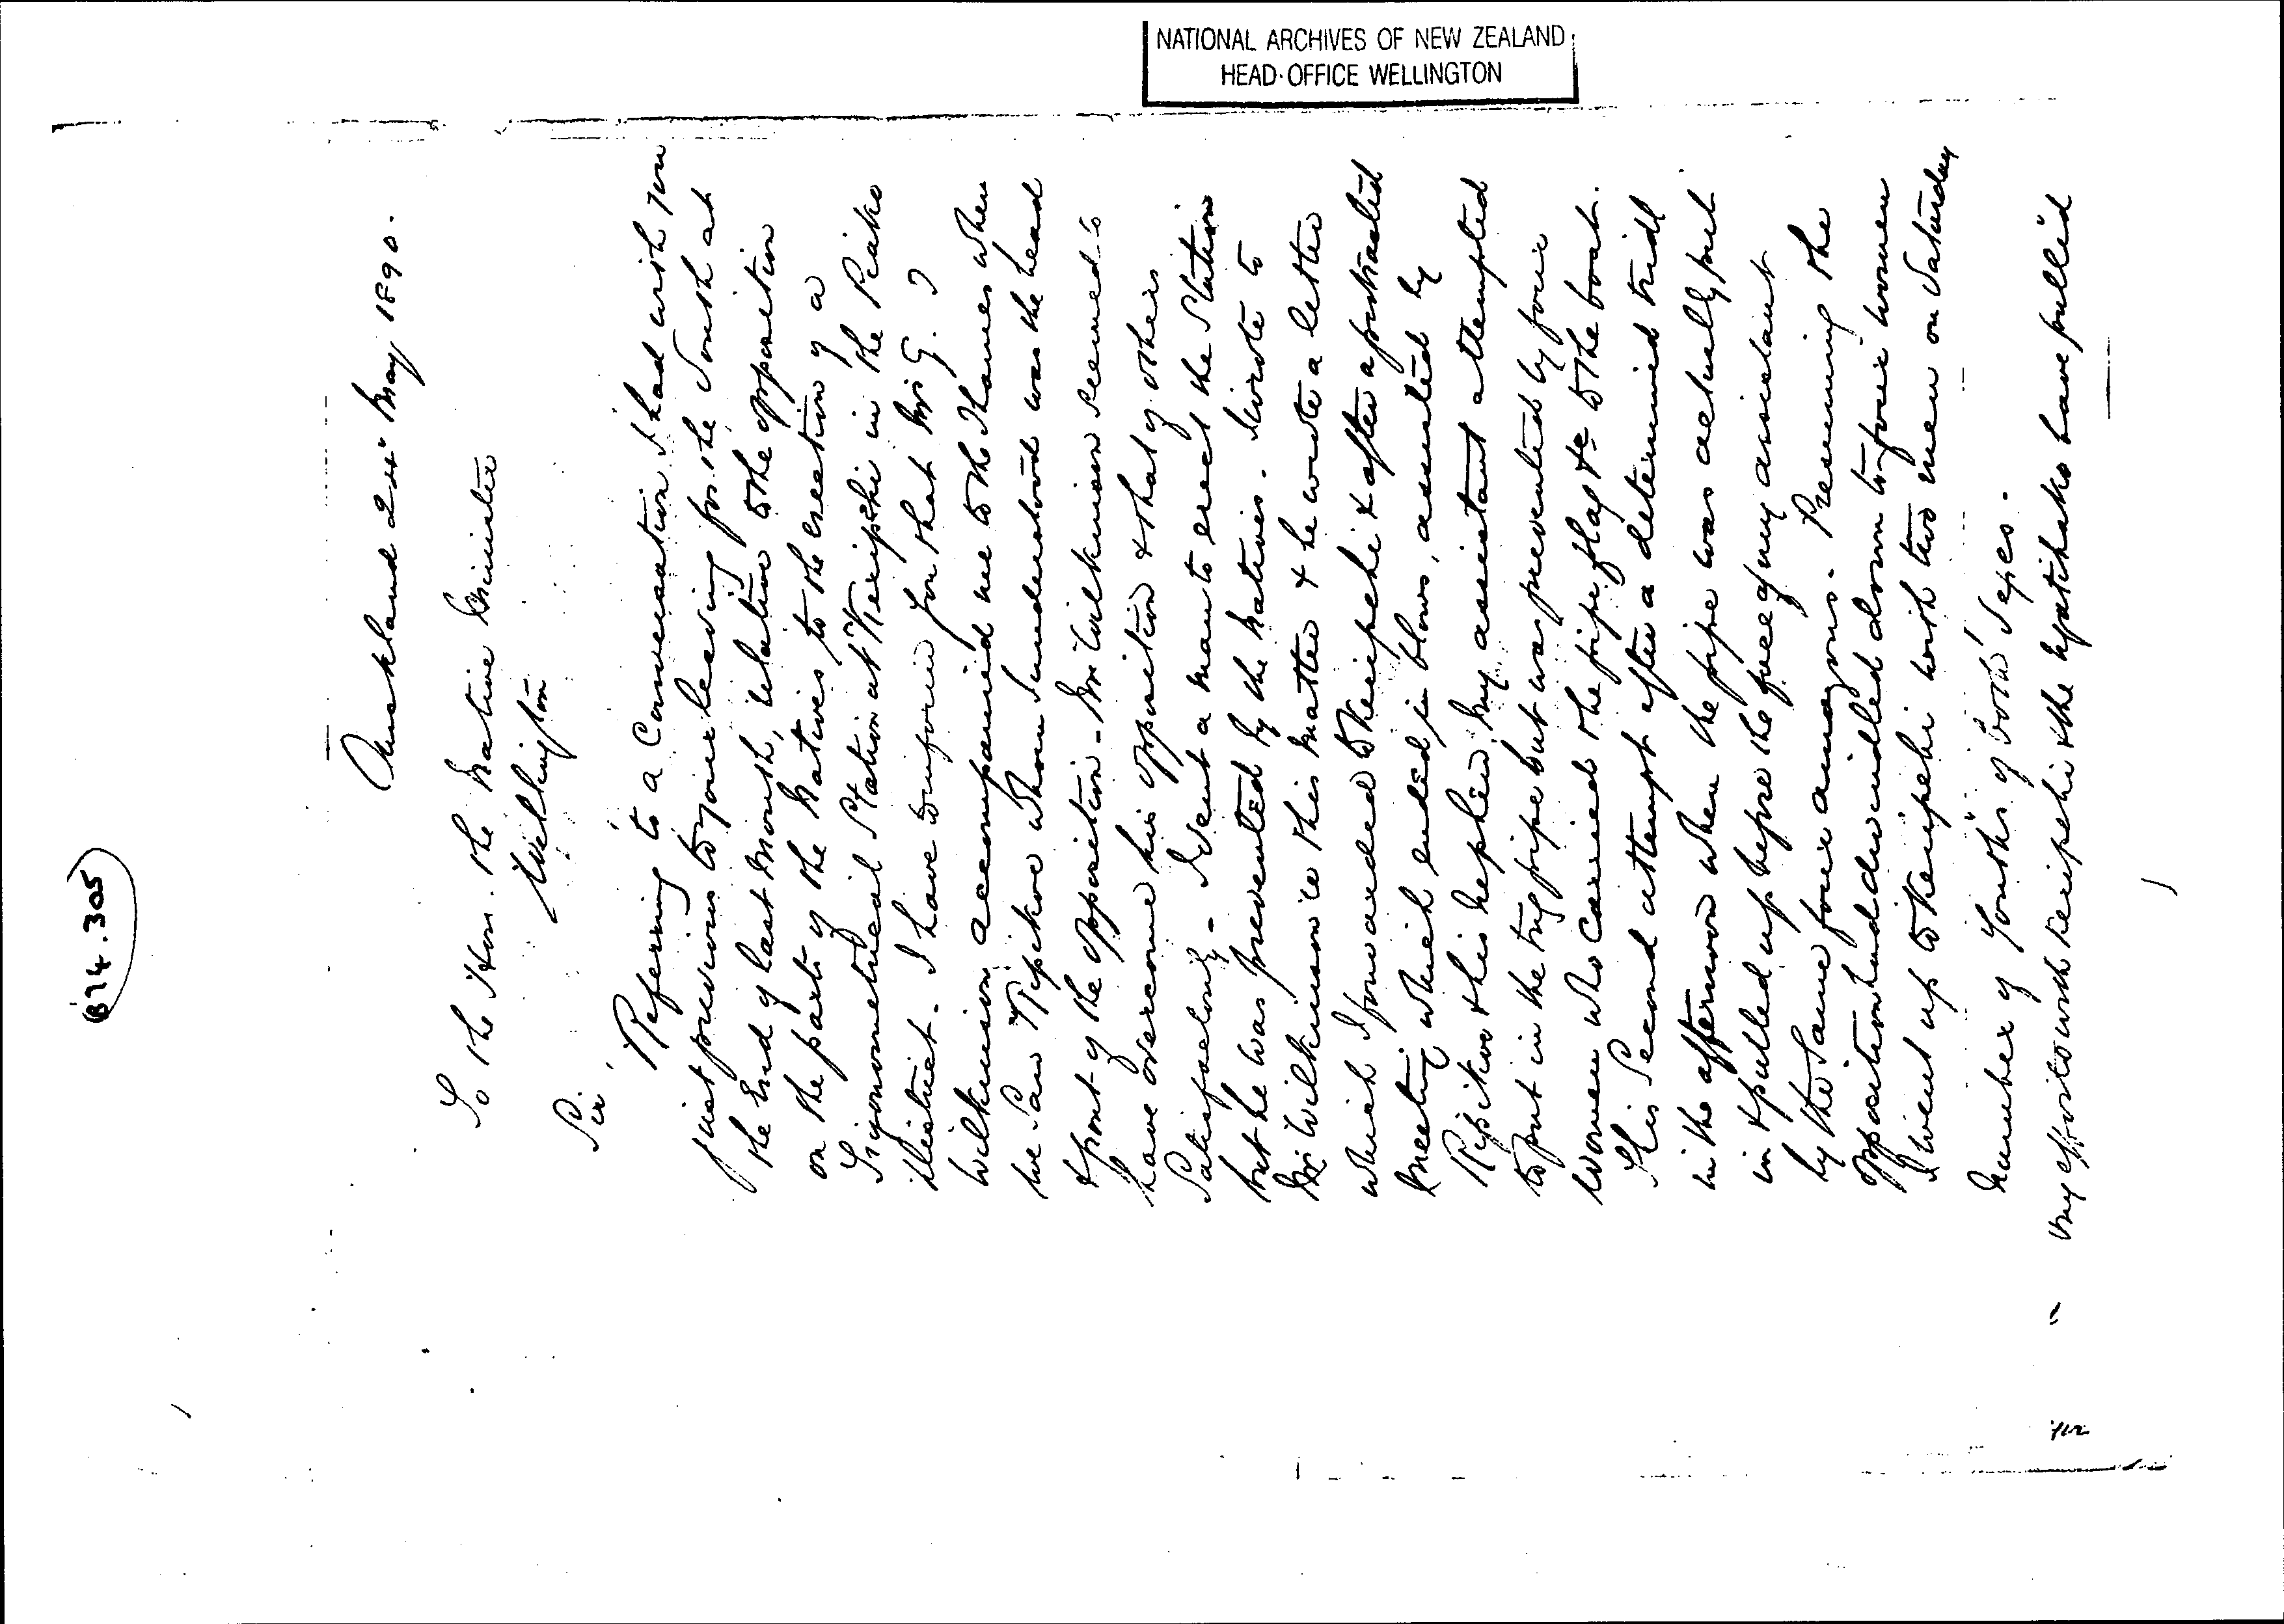 NATIONAL ARCHIVES OF NEW ZEALAND
HEAD OFFICE WELLINGTON
B74.305
Auckland 24th May 1890.
To the Hon. the Native Minister
Wellington
Sir
Referring to a Conversation I had with you
just previous to your leaving for the South at
the End of last Month, relative to the opposition
on the part of the Natives to the erection of a
Trigonometrical Station at Keripehi in the Piako
district. I have to inform you that Mr G. T
Wilkinson accompanied me to the Thames when
we saw Tipikoo whom I understood was the head
& front of the opposition. Mr Wilkinson seemed to
have overcome his opposition & that of others
Satisfactorily. I sent a man to erect the Station
but he was prevented by the Natives. I wrote to
Mr Wilkinson re this matter & he wrote a letter
which I forwarded to Keripehi & after a protracted
Meeting which ended in blows, assented by
Tipikoo & his hapu my assistant attempted
to put in the trig pipe but was prevented by four
women who carried the pipe flag &c to the boat.
His Second attempt after a determined tussle
in the afternoon when the pipe was actually put
in & pulled up before the face of my assistant
by the same four amazons. Presuming the
opposition had dwindled down to four women
I went up to Keripehi with two men on Saturday
number of youths of both sexes.
my efforts with Keripehi & the Ngatihako have pulled